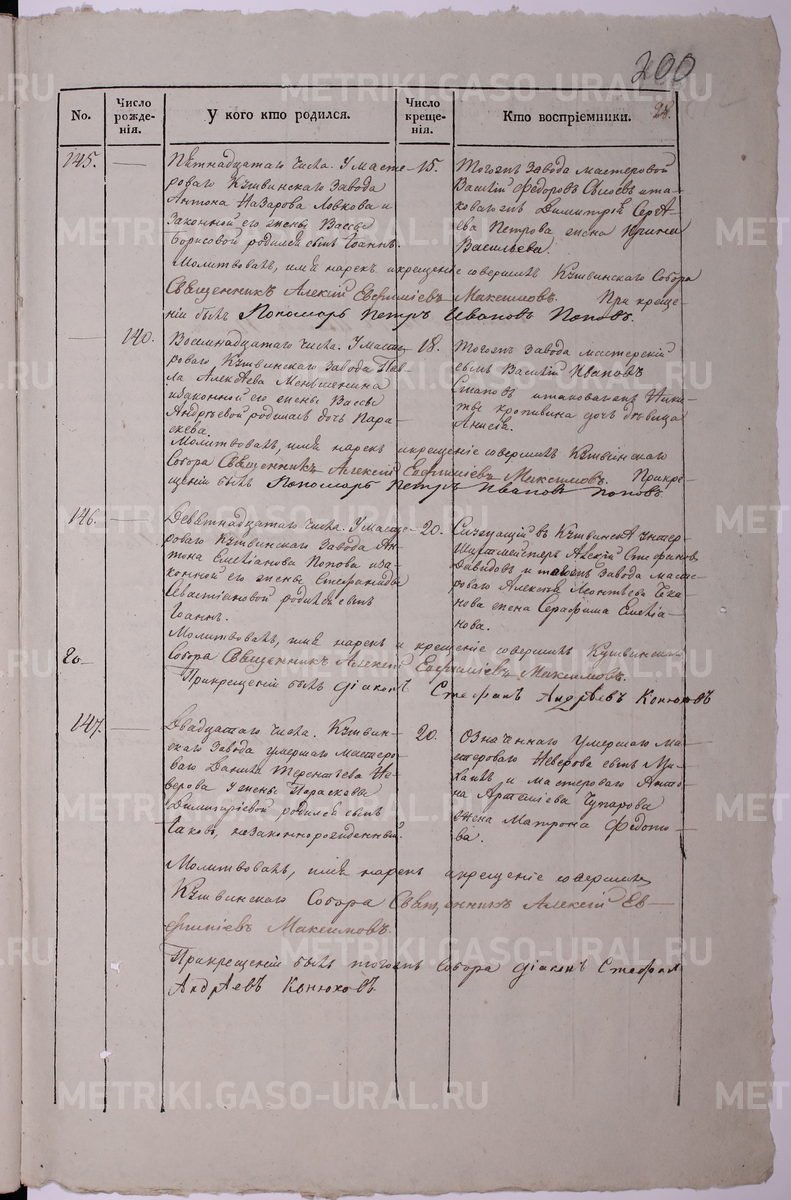 200
24.
No.
Число рожде-нія.
У кого кто родился.
Число креще-нія.
Кто воспріемники.
145.
Пятнадцатаго числа. У масте-
роваго Кушвинскаго завода
Антона Назарова Ловкова и
законной его жены Вассы
Борисовой родился сынъ Іоаннъ.
15.
Тогожъ завода мастеровой
Василій Федоровъ и та-
коваго жъ Димитрій Серг-
ѣева Петрова жена Ирина
Васильева.
Молитвовалъ, имя нарекъ и крещеніе совершилъ Кушвинскаго Собора
Священникъ Алексій Евфиміевъ Максимовъ. При креще-
ніи былъ Пономарь Петръ Ивановъ Поповъ.
140.
Восемнадцатаго числа. У масте-
роваго Кушвинскаго завода Пав-
ла Алексѣева Меньшенина
и законной его жены Вассы
Андреевой родилась дочь Пара-
скева.
18.
Тогожъ завода мастерскій
сынъ Василій Ивановъ
и таковагожъ Ники-
ты Кропивина дочь дѣвица
Анисія.
Молитвовалъ, имя нарекъ и крещеніе совершилъ Кушвинскаго
Собора Священникъ Алексій Евфиміевъ Максимовъ. При кре-
щеніи былъ Пономарь Петръ Ивановъ Поповъ
146.
Девятнадцатаго числа. У масте-
роваго Кушвинскаго завода Ан-
тона Емеліанова Попова и за-
конной его жены Стефаниды
Севастіановой родился сынъ
Іоаннъ.
20.
Служащій въ Кушвинскѣ унтер-
шихтмейстеръ Алексій Стефановъ
Давидовъ и тогожъ завода масте-
роваго Алексѣя Леонтьева
жена Серафима Емеліа-
нова.
Молитвовалъ, имя нарекъ и крещеніе совершилъ Кушвинскаго
Собора Священникъ Алексій Евфиміевъ Максимовъ.
При крещеніи былъ діаконъ Стефанъ Андреевъ Конюховъ
147.
Двадцатаго числа. Кушвин-
скаго завода умершаго мастеро-
ваго Данила Терентьева Не-
верова у жены Параскевы
Димитріевой родился сынъ
Іаковъ, незаконнорожденный.
20.
Означеннаго умершаго ма-
стероваго Неверова сынъ Ми-
хаилъ и мастероваго Анто-
на Артеміева Чупарова
жена Матрона Федото-
ва.
Молитвовалъ, имя нарекъ и крещеніе совершилъ
Кушвинскаго Собора Священникъ Алексій Ев-
фиміевъ Максимовъ.
При крещеніи былъ тогожъ Собора діаконъ Стефанъ
Андреевъ Конюховъ
METRIKI.GASO-URAL.RU